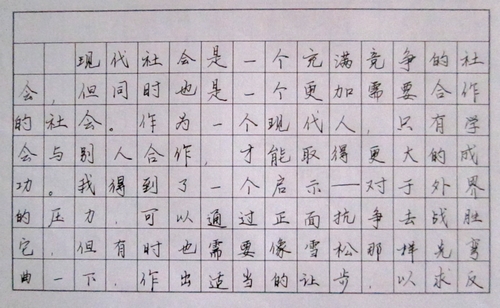 现代社会是一个充满竞争的社
会，但同时也是一个更加需要合作
的社会。作为一个现代人，只有学
会与别人合作，才能取得更大的成
功。我得到了一个启示——对于外界
的压力，可以通过正面抗争去战胜
它，但有时也需要像雪松那样先弯
曲一下，作出适当的让步，以求反